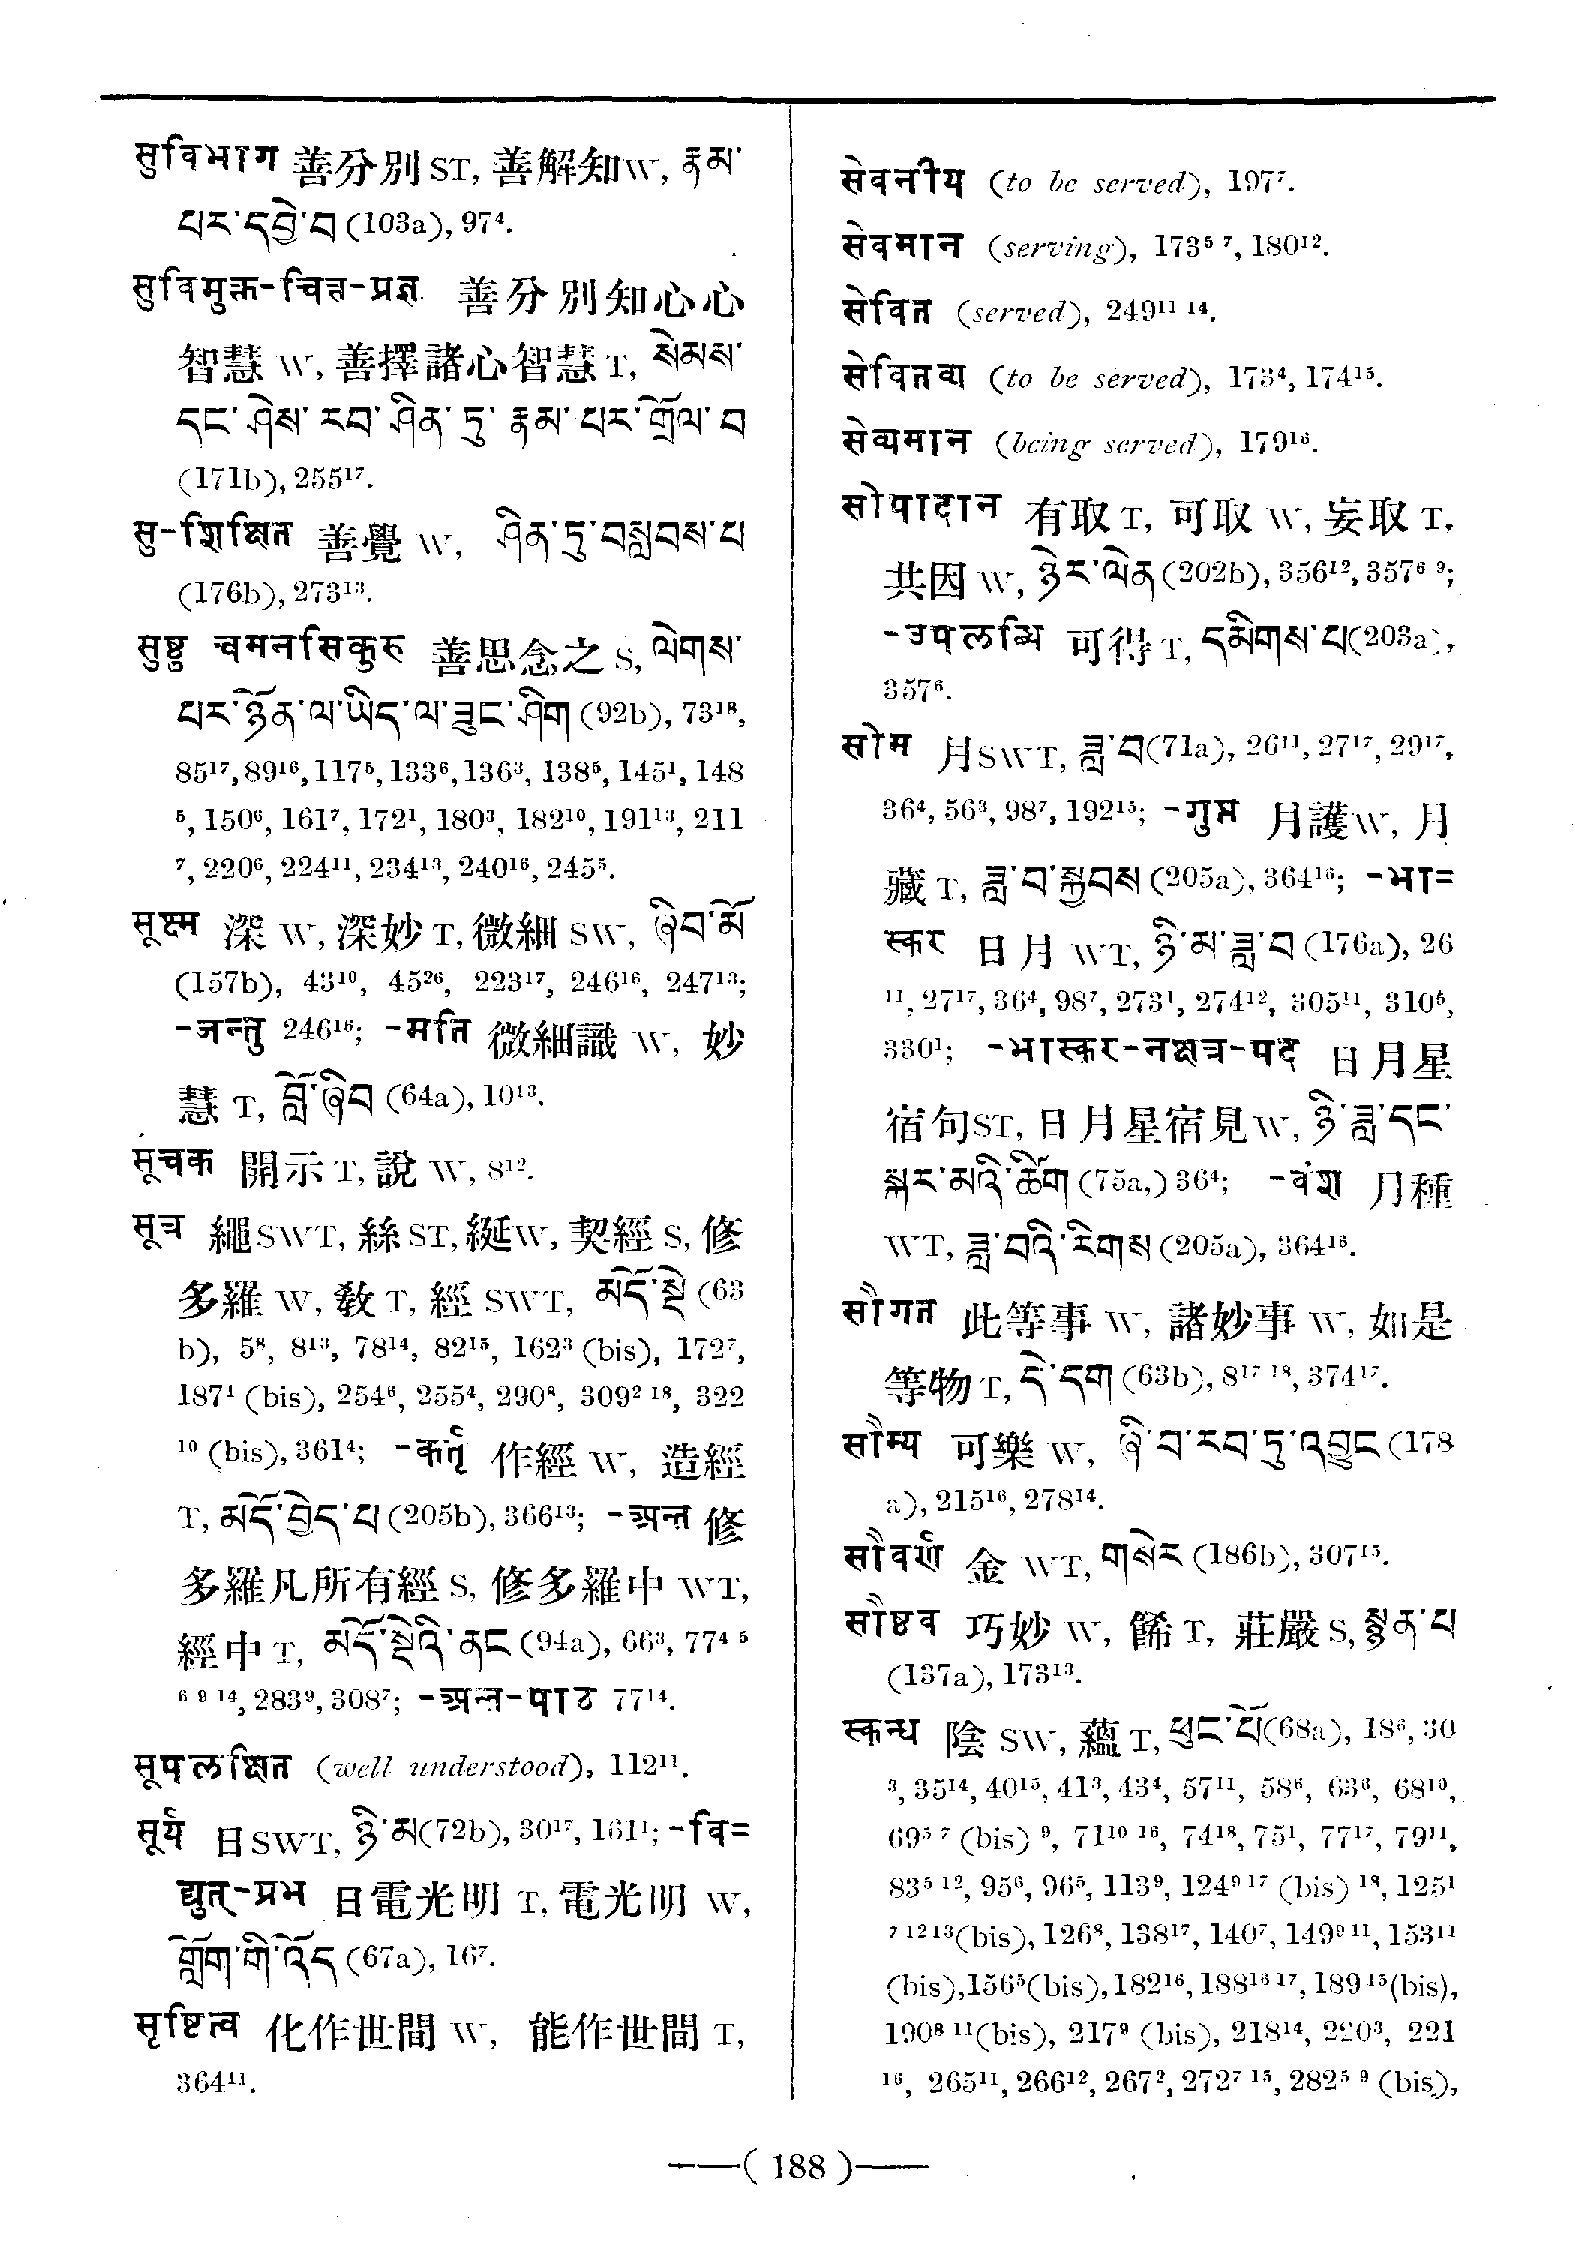 सुविभाग 善分別 ST, 善解知 W, རྣམ་
པར་དབྱེ་བ (103a), 97⁴.
सुविमुक्त-चित्त-प्रज्ञ 善分別知心心
智慧 W, 善擇諸心智慧 T, སེམས་
དང་ཤེས་རབ་ཤིན་ཏུ་རྣམ་པར་གྲོལ་བ
(171b), 255¹⁷.
सु-शिक्षित 善覺 W, ཤིན་ཏུ་བསླབས་པ
(176b), 273¹³.
सुष्ठु चमनसिकुरु 善思念之 S, ལེགས་
པར་ཉོན་ལ་ཡིད་ལ་ཟུང་ཤིག (92b), 73¹⁸,
85¹⁷, 89¹⁶, 117⁵, 133⁶, 136³, 138⁵, 145¹, 148
⁵, 150⁶, 161⁷, 172¹, 180³, 182¹⁰, 191¹³, 211
⁷, 220⁶, 224¹¹, 234¹³, 240¹⁶, 245⁵.
सूक्ष्म 深 W, 深妙 T, 微細 SW, ཞིབ་མོ
(157b), 43¹⁰, 45²⁶, 223¹⁷, 246¹⁶, 247¹³;
-जन्तु 246¹⁶; -मति 微細識 W, 妙
慧 T, བློ་ཞིབ (64a), 10¹³.
सूचक 開示 T, 說 W, 8¹².
सूत्र 繩 SWT, 絲 ST, 綖 W, 契經 S, 修
多羅 W, 敎 T, 經 SWT, མདོ་སྡེ (63
b), 5⁸, 8¹³, 78¹⁴, 82¹⁵, 162³ (bis), 172⁷,
187¹ (bis), 254⁶, 255⁴, 290⁸, 309² ¹⁸, 322
¹⁰ (bis), 361⁴; -कर्तृ 作經 W, 造經
T, མདོ་བྱེད་པ (205b), 366¹³; -अन्त 修
多羅凡所有經 S, 修多羅中 WT,
經中 T, མདོ་སྡེའི་ནང (94a), 66³, 77⁴ ⁵
⁶ ⁹ ¹⁴, 283⁹, 308⁷; -अन्त-पाठ 77¹⁴.
सूपलक्षित (well understood), 112¹¹.
सूर्य 日 SWT, ཉི་མ (72b), 30¹⁷, 161¹; -वि=
द्युत्-प्रभ 日電光明 T, 電光明 W,
གློག་གི་འོད (67a), 16⁷.
सृष्टित्व 化作世間 W, 能作世間 T,
364¹¹.
सेवनीय (to be served), 197⁷.
सेवमान (serving), 173⁵ ⁷, 180¹².
सेवित (served), 249¹¹ ¹⁴.
सेवितव्य (to be served), 173⁴, 174¹⁵.
सेव्यमान (being served), 179¹⁶.
सोपादान 有取 T, 可取 W, 妄取 T,
共因 W, ཉེར་ལེན (202b), 356¹², 357⁶ ⁹;
-उपलब्धि 可得 T, དམིགས་པ (203a),
357⁶.
सोम 月 SWT, ཟླ་བ (71a), 26¹¹, 27¹⁷, 29¹⁷,
36⁴, 56³, 98⁷, 192¹⁵; -गुप्त 月護 W, 月
藏 T, ཟླ་བ་སྐྱབས (205a), 364¹⁶; -भा=
स्कर 日月 WT, ཉི་མ་ཟླ་བ (176a), 26
¹¹, 27¹⁷, 36⁴, 98⁷, 273¹, 274¹², 305¹¹, 310⁵,
330¹; -भास्कर-नक्षत्र-पद 日月星
宿句 ST, 日月星宿見 W, ཉི་ཟླ་དང་
སྐར་མའི་ཚིག (75a,) 36⁴; -वंश 月種
WT, ཟླ་བའི་རིགས (205a), 364¹⁶.
सौगत 此等事 W, 諸妙事 W, 如是
等物 T, དེ་དག (63b), 8¹⁷ ¹⁸, 374¹⁷.
सौम्य 可樂 W, ཞི་བ་རབ་ཏུ་འབྱུང (178
a), 215¹⁶, 278¹⁴.
सौवर्ण 金 WT, གསེར (186b), 307¹⁵.
सौष्ठव 巧妙 W, 餙 T, 莊嚴 S, སྙན་པ
(137a), 173¹³.
स्कन्ध 陰 SW, 蘊 T, ཕུང་པོ (68a), 18⁶, 30
³, 35¹⁴, 40¹⁵, 41³, 43⁴, 57¹¹, 58⁶, 63⁶, 68¹⁰,
69⁵ ⁷ (bis) ⁹, 71¹⁰ ¹⁶, 74¹⁸, 75¹, 77¹⁷, 79¹¹,
83⁵ ¹², 95⁶, 96⁵, 113⁹, 124⁹ ¹⁷ (bis) ¹⁸, 125¹
⁷ ¹² ¹³ (bis), 126⁸, 138¹⁷, 140⁷, 149⁹ ¹¹, 153¹¹
(bis), 156⁵ (bis), 182¹⁶, 188¹⁶ ¹⁷, 189¹⁵ (bis),
190⁸ ¹¹ (bis), 217⁹ (bis), 218¹⁴, 220³, 221
¹⁶, 265¹¹, 266¹², 267², 272⁷ ¹⁵, 282⁵ ⁹ (bis),
——( 188 )——